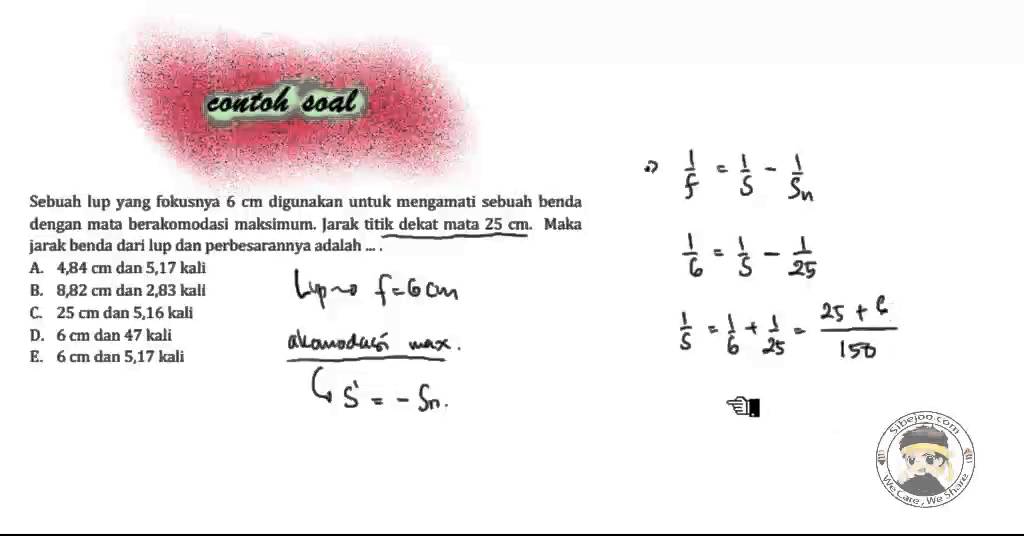 contoh soal
Sebuah lup yang fokusnya 6 cm digunakan untuk mengamati sebuah benda
dengan mata berakomodasi maksimum. Jarak titik dekat mata 25 cm. Maka
jarak benda dari lup dan perbesarannya adalah ... .
A. 4,84 cm dan 5,17 kali
B. 8,82 cm dan 2,83 kali
C. 25 cm dan 5,16 kali
D. 6 cm dan 47 kali
E. 6 cm dan 5,17 kali
Lup → f = 6 cm
akomodasi max.
↳ S' = - Sn.
1/f = 1/S - 1/Sn
1/6 = 1/S - 1/25
1/S = 1/6 + 1/25 = 25 + 6/150
Sibejoo.com
We Care, We Share